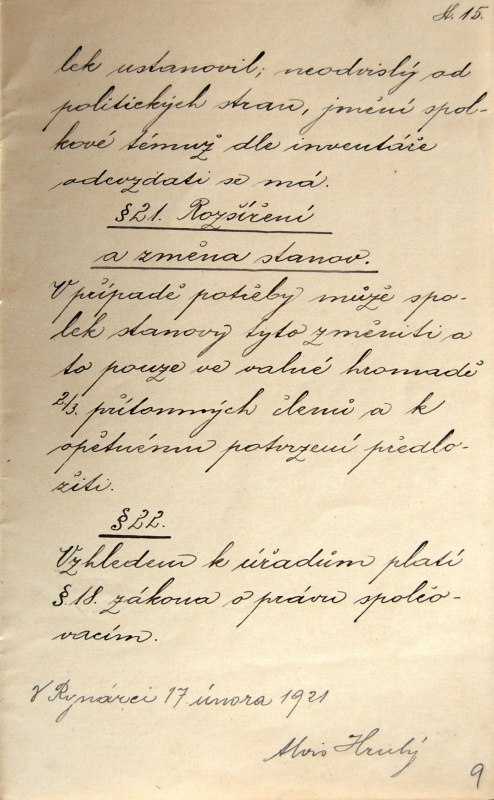 St. 15.
lek ustanovil; neodvislý od
politických stran, jmění spol-
kové témuž dle inventáře
odevzdati se má.
§ 21. Rozšíření
a změna stanov.
V případě potřeby může spo-
lek stanovy tyto změniti a
to pouze ve valné hromadě
2/3. přítomných členů a k
opětnému potvrzení předlo-
žiti.
§ 22.
Vzhledem k úřadům platí
§. 18. zákona o právu spolčo-
vacím.
V Rynárci 17. února 1921
Alois Hrubý
9